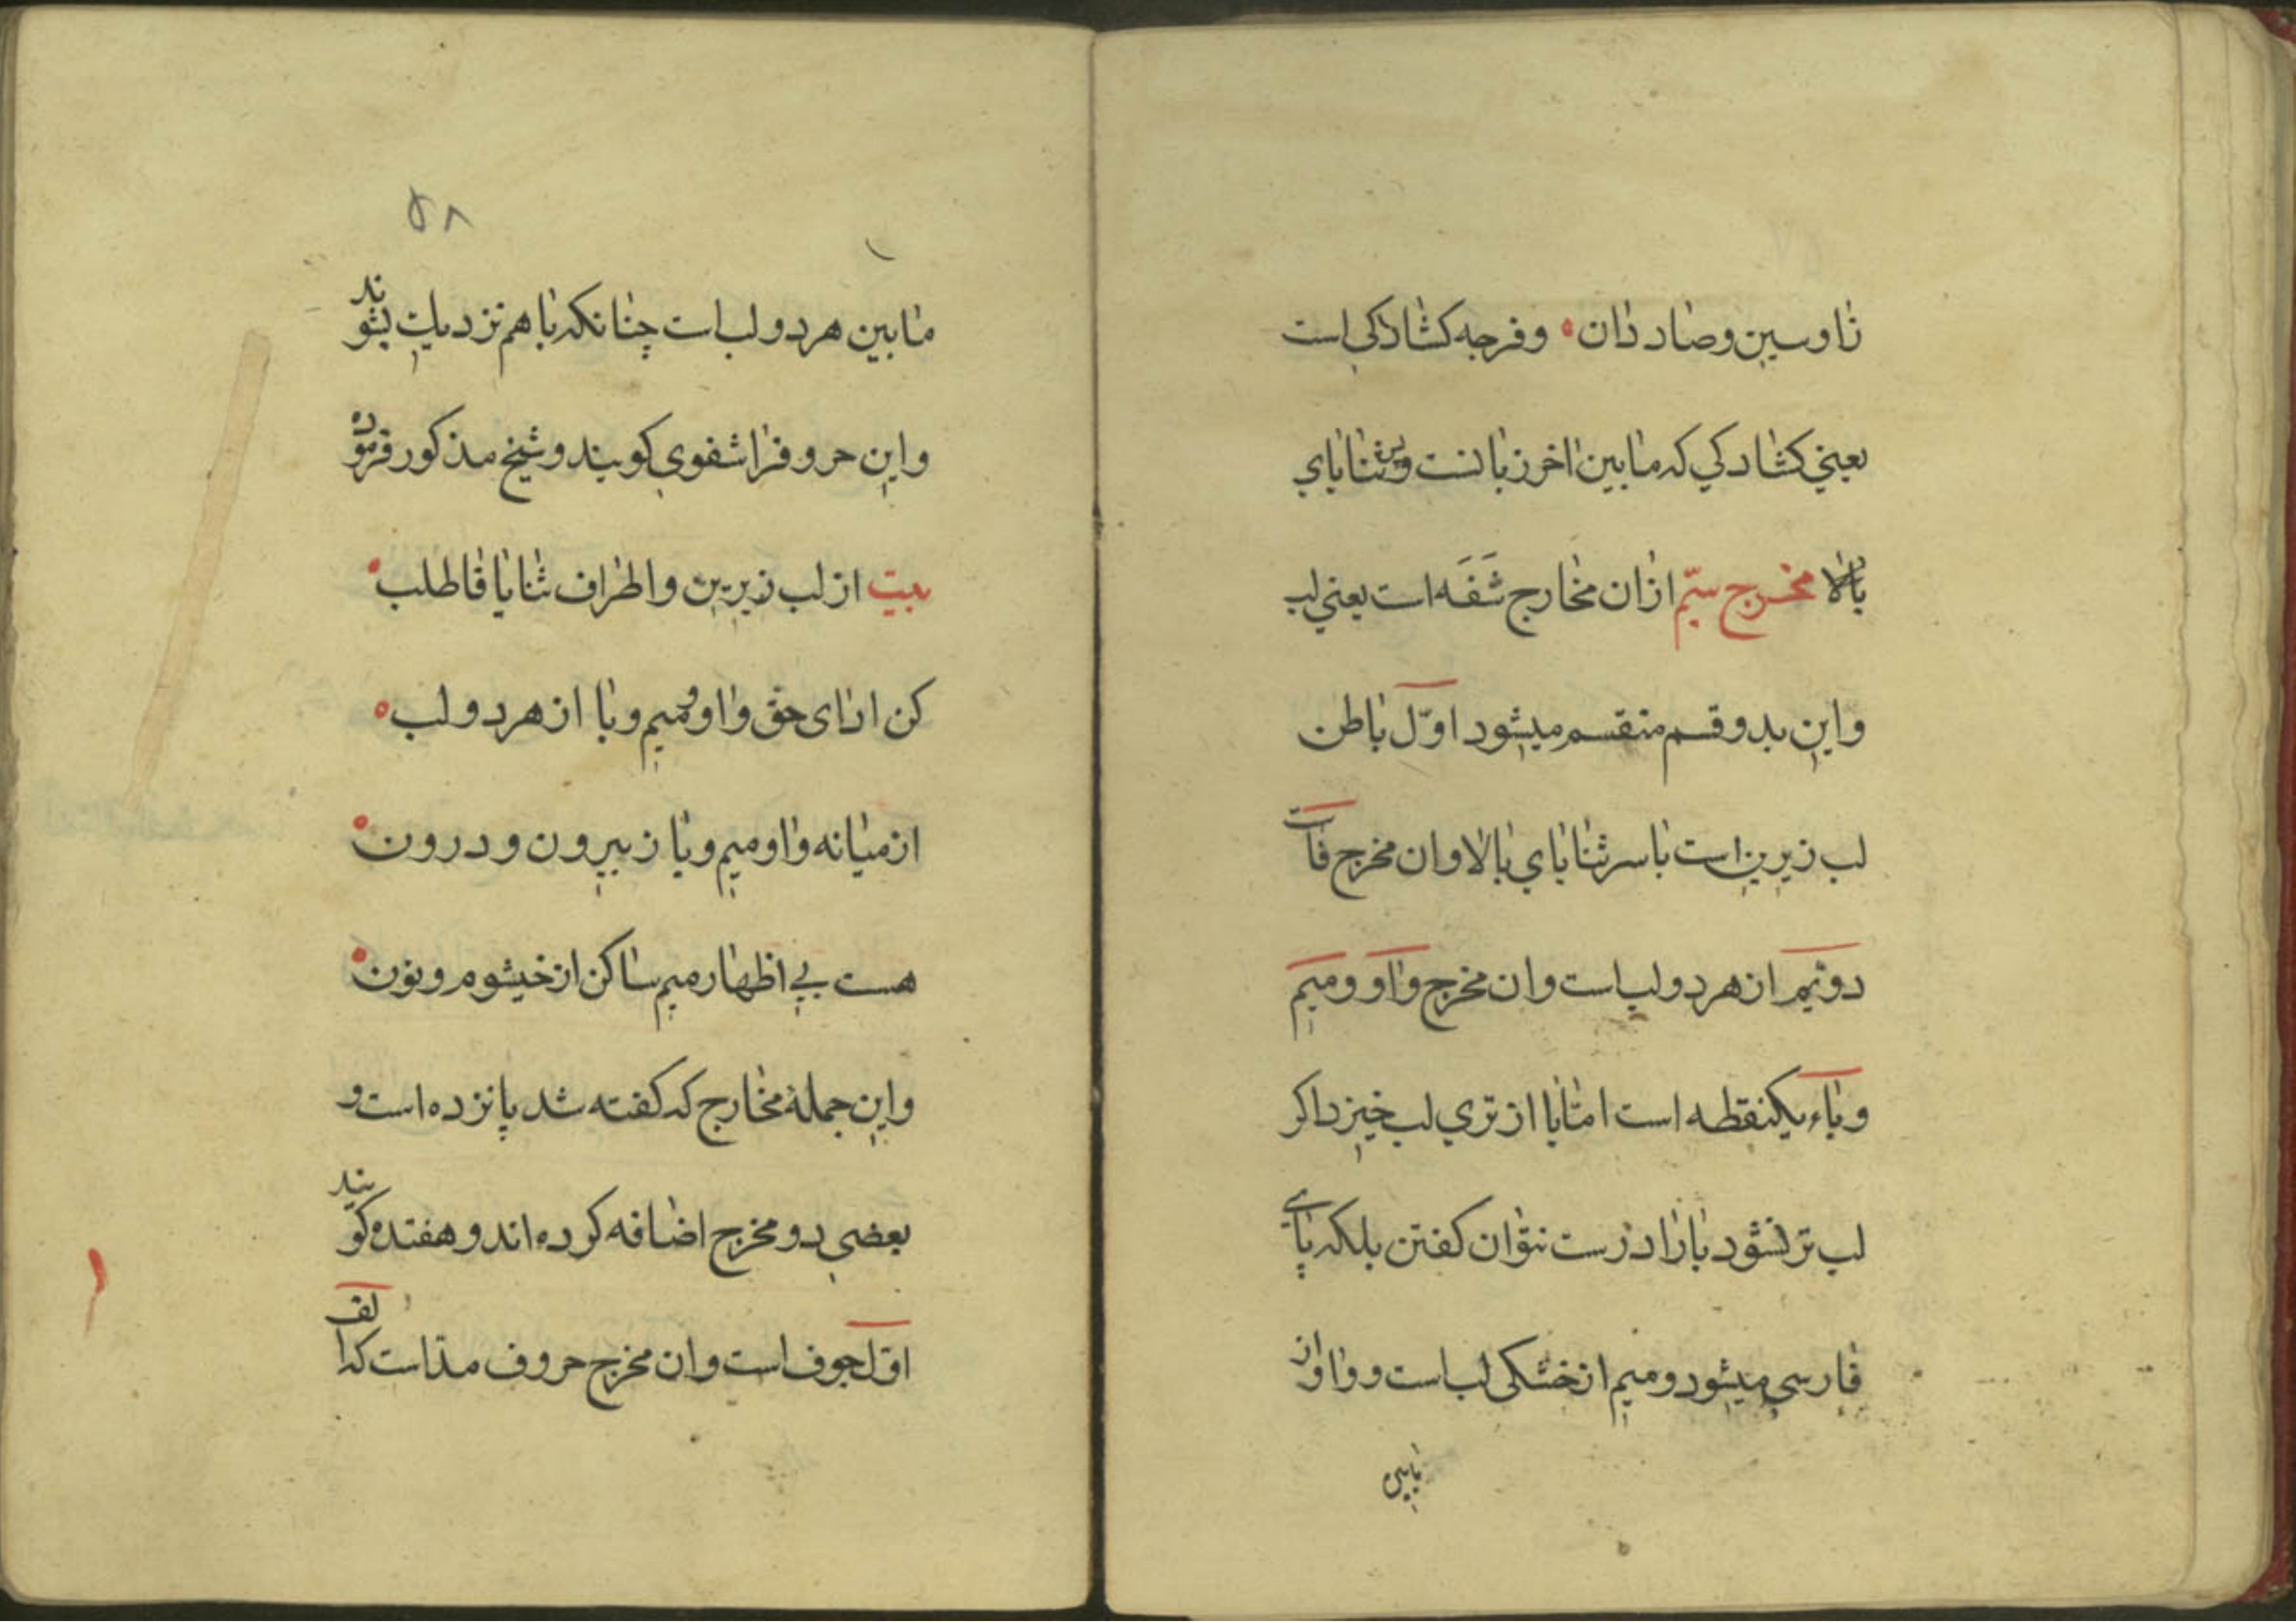 زا و سین و صاد دان ۰ و فرجه کشادکی است
یعنی کشادکی که ما بین اخر زبانست و ثنایای
بالا مخرج سیّم ازان مخارج شَفَه است یعنی لب
و این بدو قسم منقسم میشود اوّل باطن
لب زیرین است با سر ثنایای بالا و ان مخرج فاست
دوّیم از هر دو لب است و ان مخرج واو و میم
و باء یکنقطه است امّا با از تری لب خیزد اکر
لب تر نشود با را درست نتوان کفتن بلکه بای
فارسی میشود و میم از خشکی لب است و واو از
مابین
۵۸
ما بین هر دو لب است چنانکه با هم نزدیک بشوند
و این حروف را شفوی کویند و شیخ مذکور فرموده
بیت از لب زیرین و اطراف ثنایا فا طلب ۰
کن ادای حق واو و میم و با از هر دو لب ۰
از میانه واو و میم و با ز بیرون و درون ۰
هست بی اظهار میم ساکن از خیشوم و نون ۰
و این جملهٔ مخارج که کفته شد پانزده است و
بعضی دو مخرج اضافه کرده اند و هفتده کویند
اوّل جوف است و ان مخرج حروف مدّ است که الف